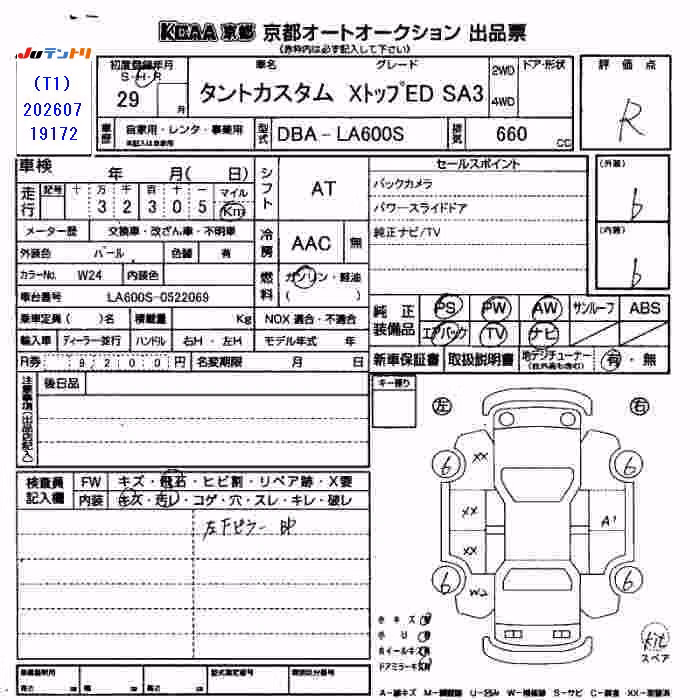 KCAA 京都 京都オートオークション 出品票
(赤枠内は必ず記入して下さい)
Juテントリ
(T1)
202607
19172
初度登録年月
S・H・R
29 月
車名 グレード
タントカスタム XトップED SA3
2WD
4WD
ドア・形状
評価点
R
車歴
自家用・レンタ・事業用
型式
DBA-LA600S
排気
660 CC
車検 年 月( 日)
シフト
AT
セールスポイント
バックカメラ
パワースライドドア
純正ナビ/TV
(外装)
b
(内装)
b
走行
記号
十 万 千 百 十 一
3 2 3 0 5
マイル
Km
メーター歴 交換車・改ざん車・不明車
冷房
AAC 無
外装色 パール 色替 有
カラーNo. W24 内装色
燃料
ガソリン・軽油
( )
車台番号 LA600S-0522069
乗車定員( )名 積載量 Kg NOX適合・不適合
輸入車 ディーラー並行 ハンドル 右H・左H モデル年式 年
R券 9200円 名変期限 月 日
純正装備品
PS PW AW サンルーフ ABS
エアバック TV ナビ
新車保証書 取扱説明書 地デジチューナー 有・無
注意事項(出品店記入)
後日品
キー預り
左
右
検査員記入欄
FW キズ・飛石・ヒビ割・リペア跡・X要
内装 キズ・汚レ・コゲ・穴・スレ・キレ・破レ
左下ピラー
XX
XX
XX
W2
A1
6
6
6
6
小キズ
小U
ホイールキズ
ドアミラーキズ
kit
スペア
型式指定番号 類別区分番号
高さ cm 幅 cm 高さ cm 幅 cm